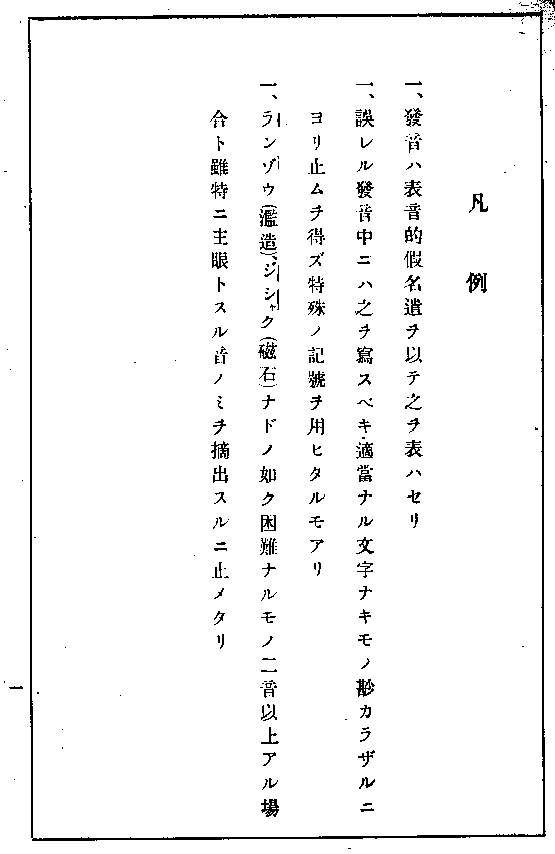 凡例
一、發音ハ表音的假名遣ヲ以テ之ヲ表ハセリ
一、誤レル發音中ニハ之ヲ寫スベキ適當ナル文字ナキモノ尠カラザルニ
ヨリ止ムヲ得ズ特殊ノ記號ヲ用ヒタルモアリ
一、ランゾウ(濫造)、ジシャク(磁石)ナドノ如ク困難ナルモノ二音以上アル場
合ト雖特ニ主眼トスル音ノミヲ摘出スルニ止メタリ
一